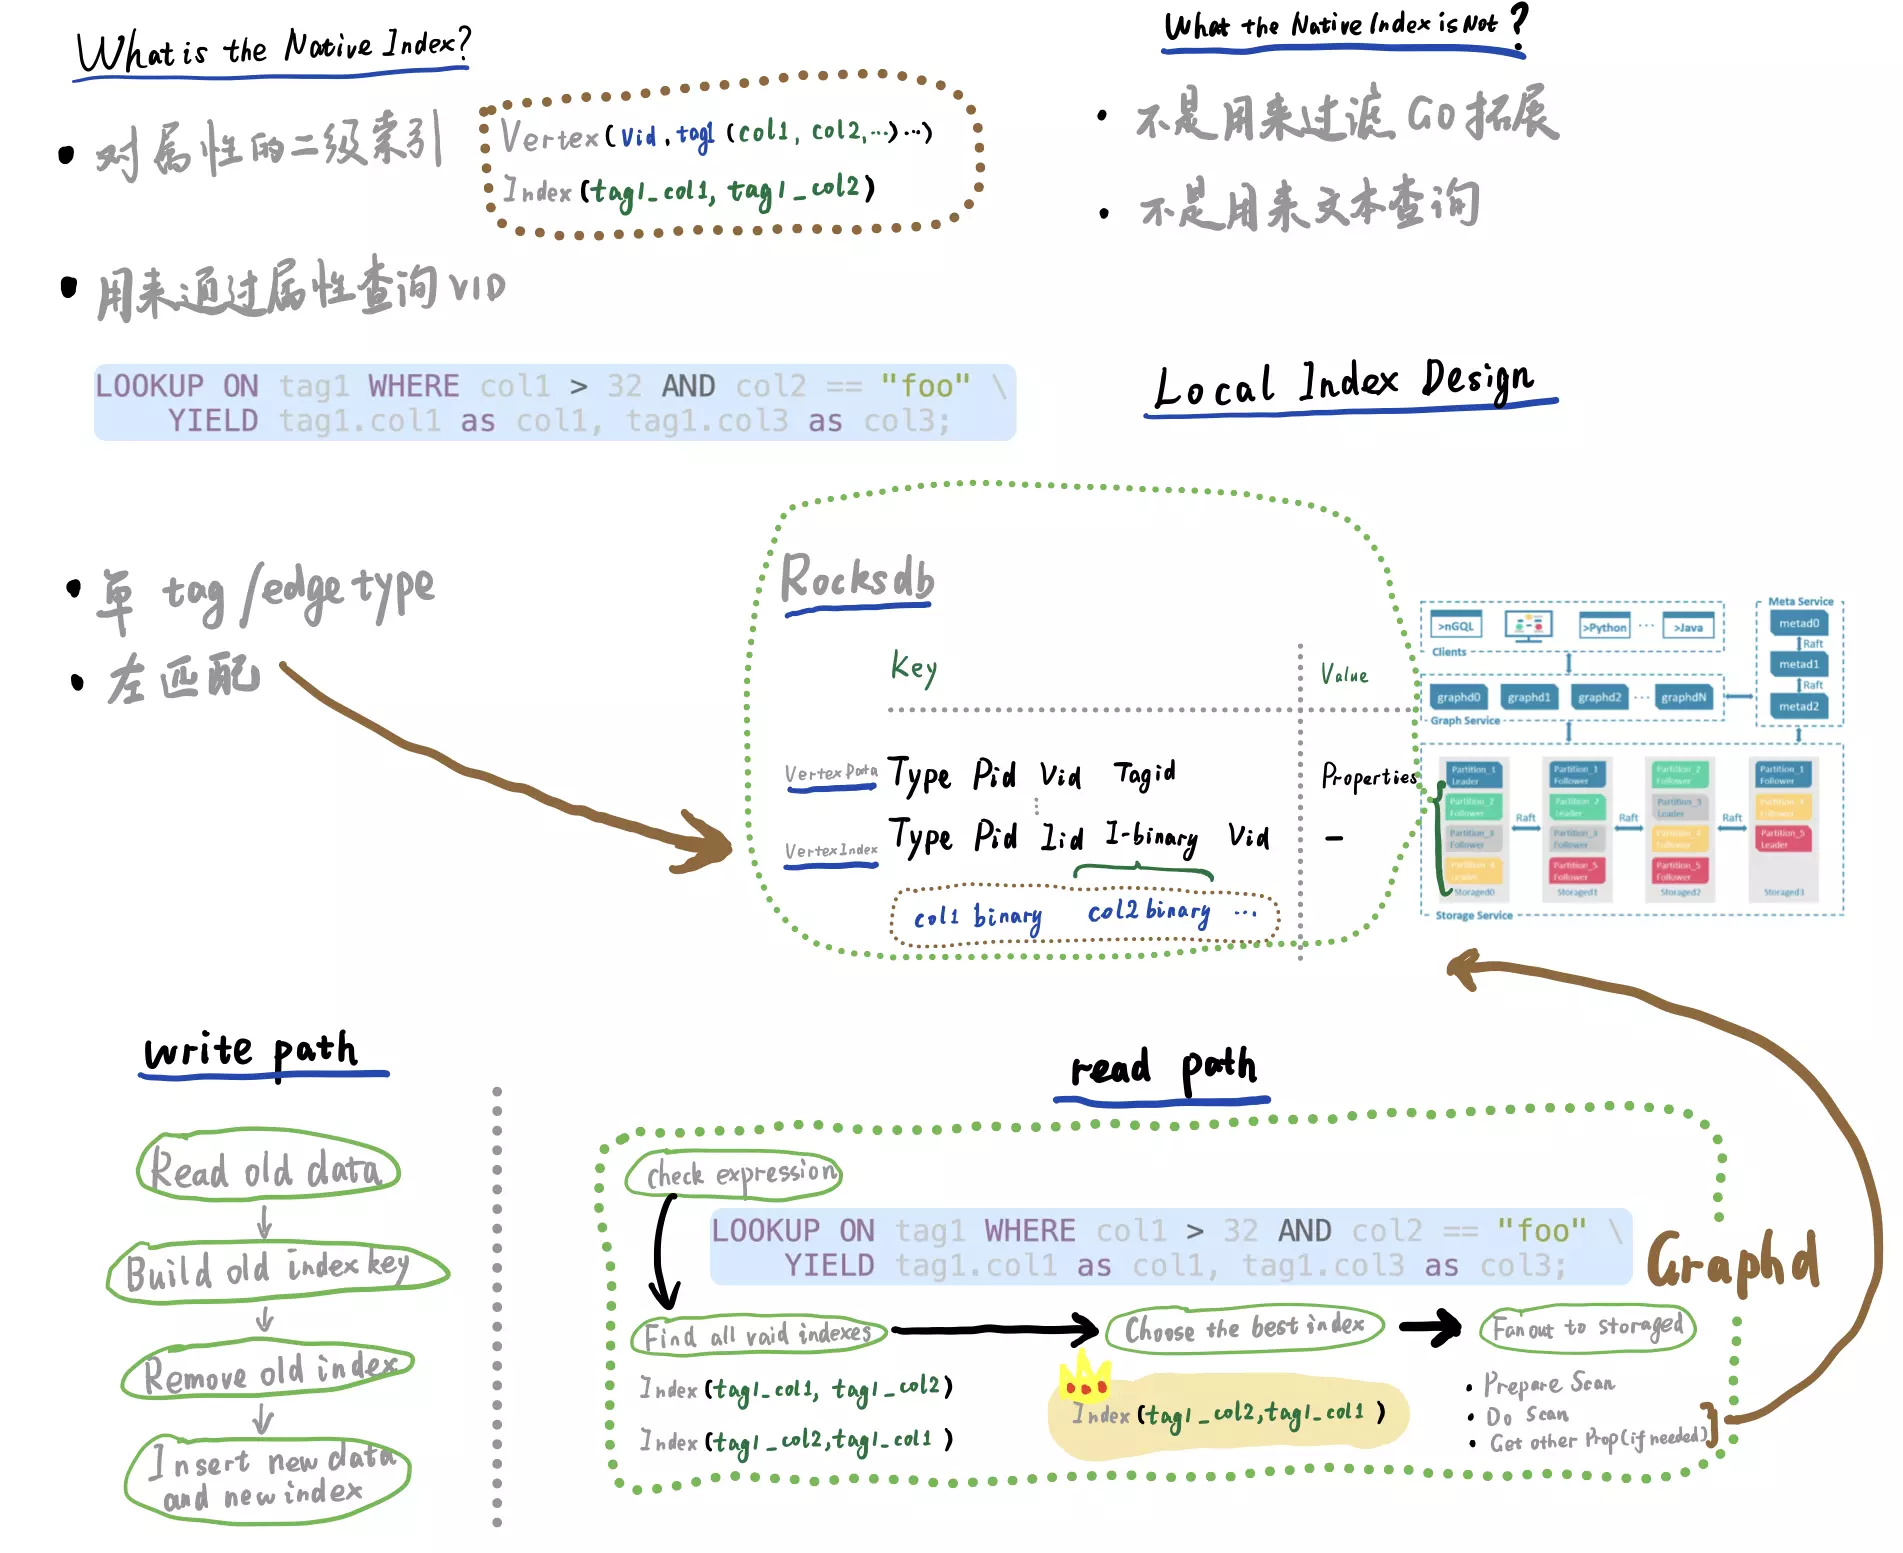 What is the Native Index?
• 对属性的二级索引
Vertex(Vid, tag1 (col1, col2,...)...)
Index(tag1_col1, tag1_col2)
• 用来通过属性查询VID
LOOKUP ON tag1 WHERE col1 > 32 AND col2 == "foo" \
YIELD tag1.col1 as col1, tag1.col3 as col3;
What the Native Index is Not?
• 不是用来过滤 GO 拓展
• 不是用来文本查询
Local Index Design
• 单 tag/edge type
• 左匹配
Rocksdb
Key
Value
Vertex Data Type Pid Vid Tagid Properties
Vertex Index Type Pid Iid I-binary Vid -
col1 binary col2 binary ...
>nGQL >Python ... >Java
Clients
graphd0 graphd1 graphd2 ... graphdN
Graph Service
Meta Service
metad0
Raft
metad1
Raft
metad2
Partition_1 Leader
Partition_2 Follower
Partition_3 Follower
Partition_4 Leader
Storaged0
Raft
Partition_1 Follower
Partition_2 Leader
Partition_3 Follower
Partition_5 Follower
Storaged1
Raft
Partition_2 Follower
Partition_3 Leader
Partition_4 Follower
Partition_5 Follower
Storaged2
Raft
Partition_1 Follower
Partition_4 Follower
Partition_5 Leader
Storaged3
Storage Service
write path
Read old data
Build old index key
Remove old index
Insert new data
and new index
read path
check expression
LOOKUP ON tag1 WHERE col1 > 32 AND col2 == "foo" \
YIELD tag1.col1 as col1, tag1.col3 as col3;
Graphd
Find all vaid indexes
Index(tag1_col1, tag1_col2)
Index(tag1_col2,tag1_col1)
Choose the best index
Index(tag1_col2,tag1_col1)
Fan out to storaged
• Prepare Scan
• Do Scan
• Get other Prop(if needed)